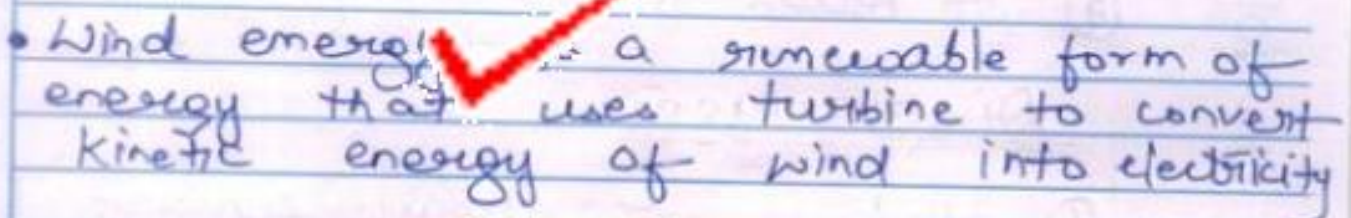 • Wind energy a renewable form of
energy that uses turbine to convert
kinetic energy of wind into electricity